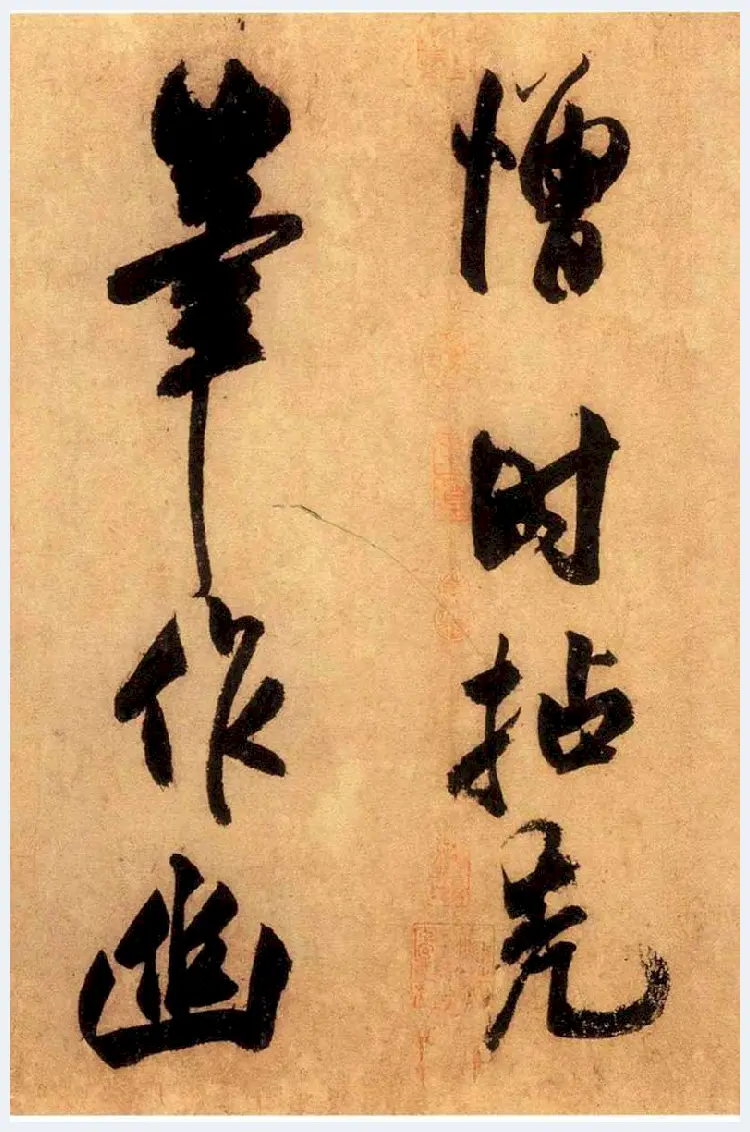 憎时拈秃
筆作幽